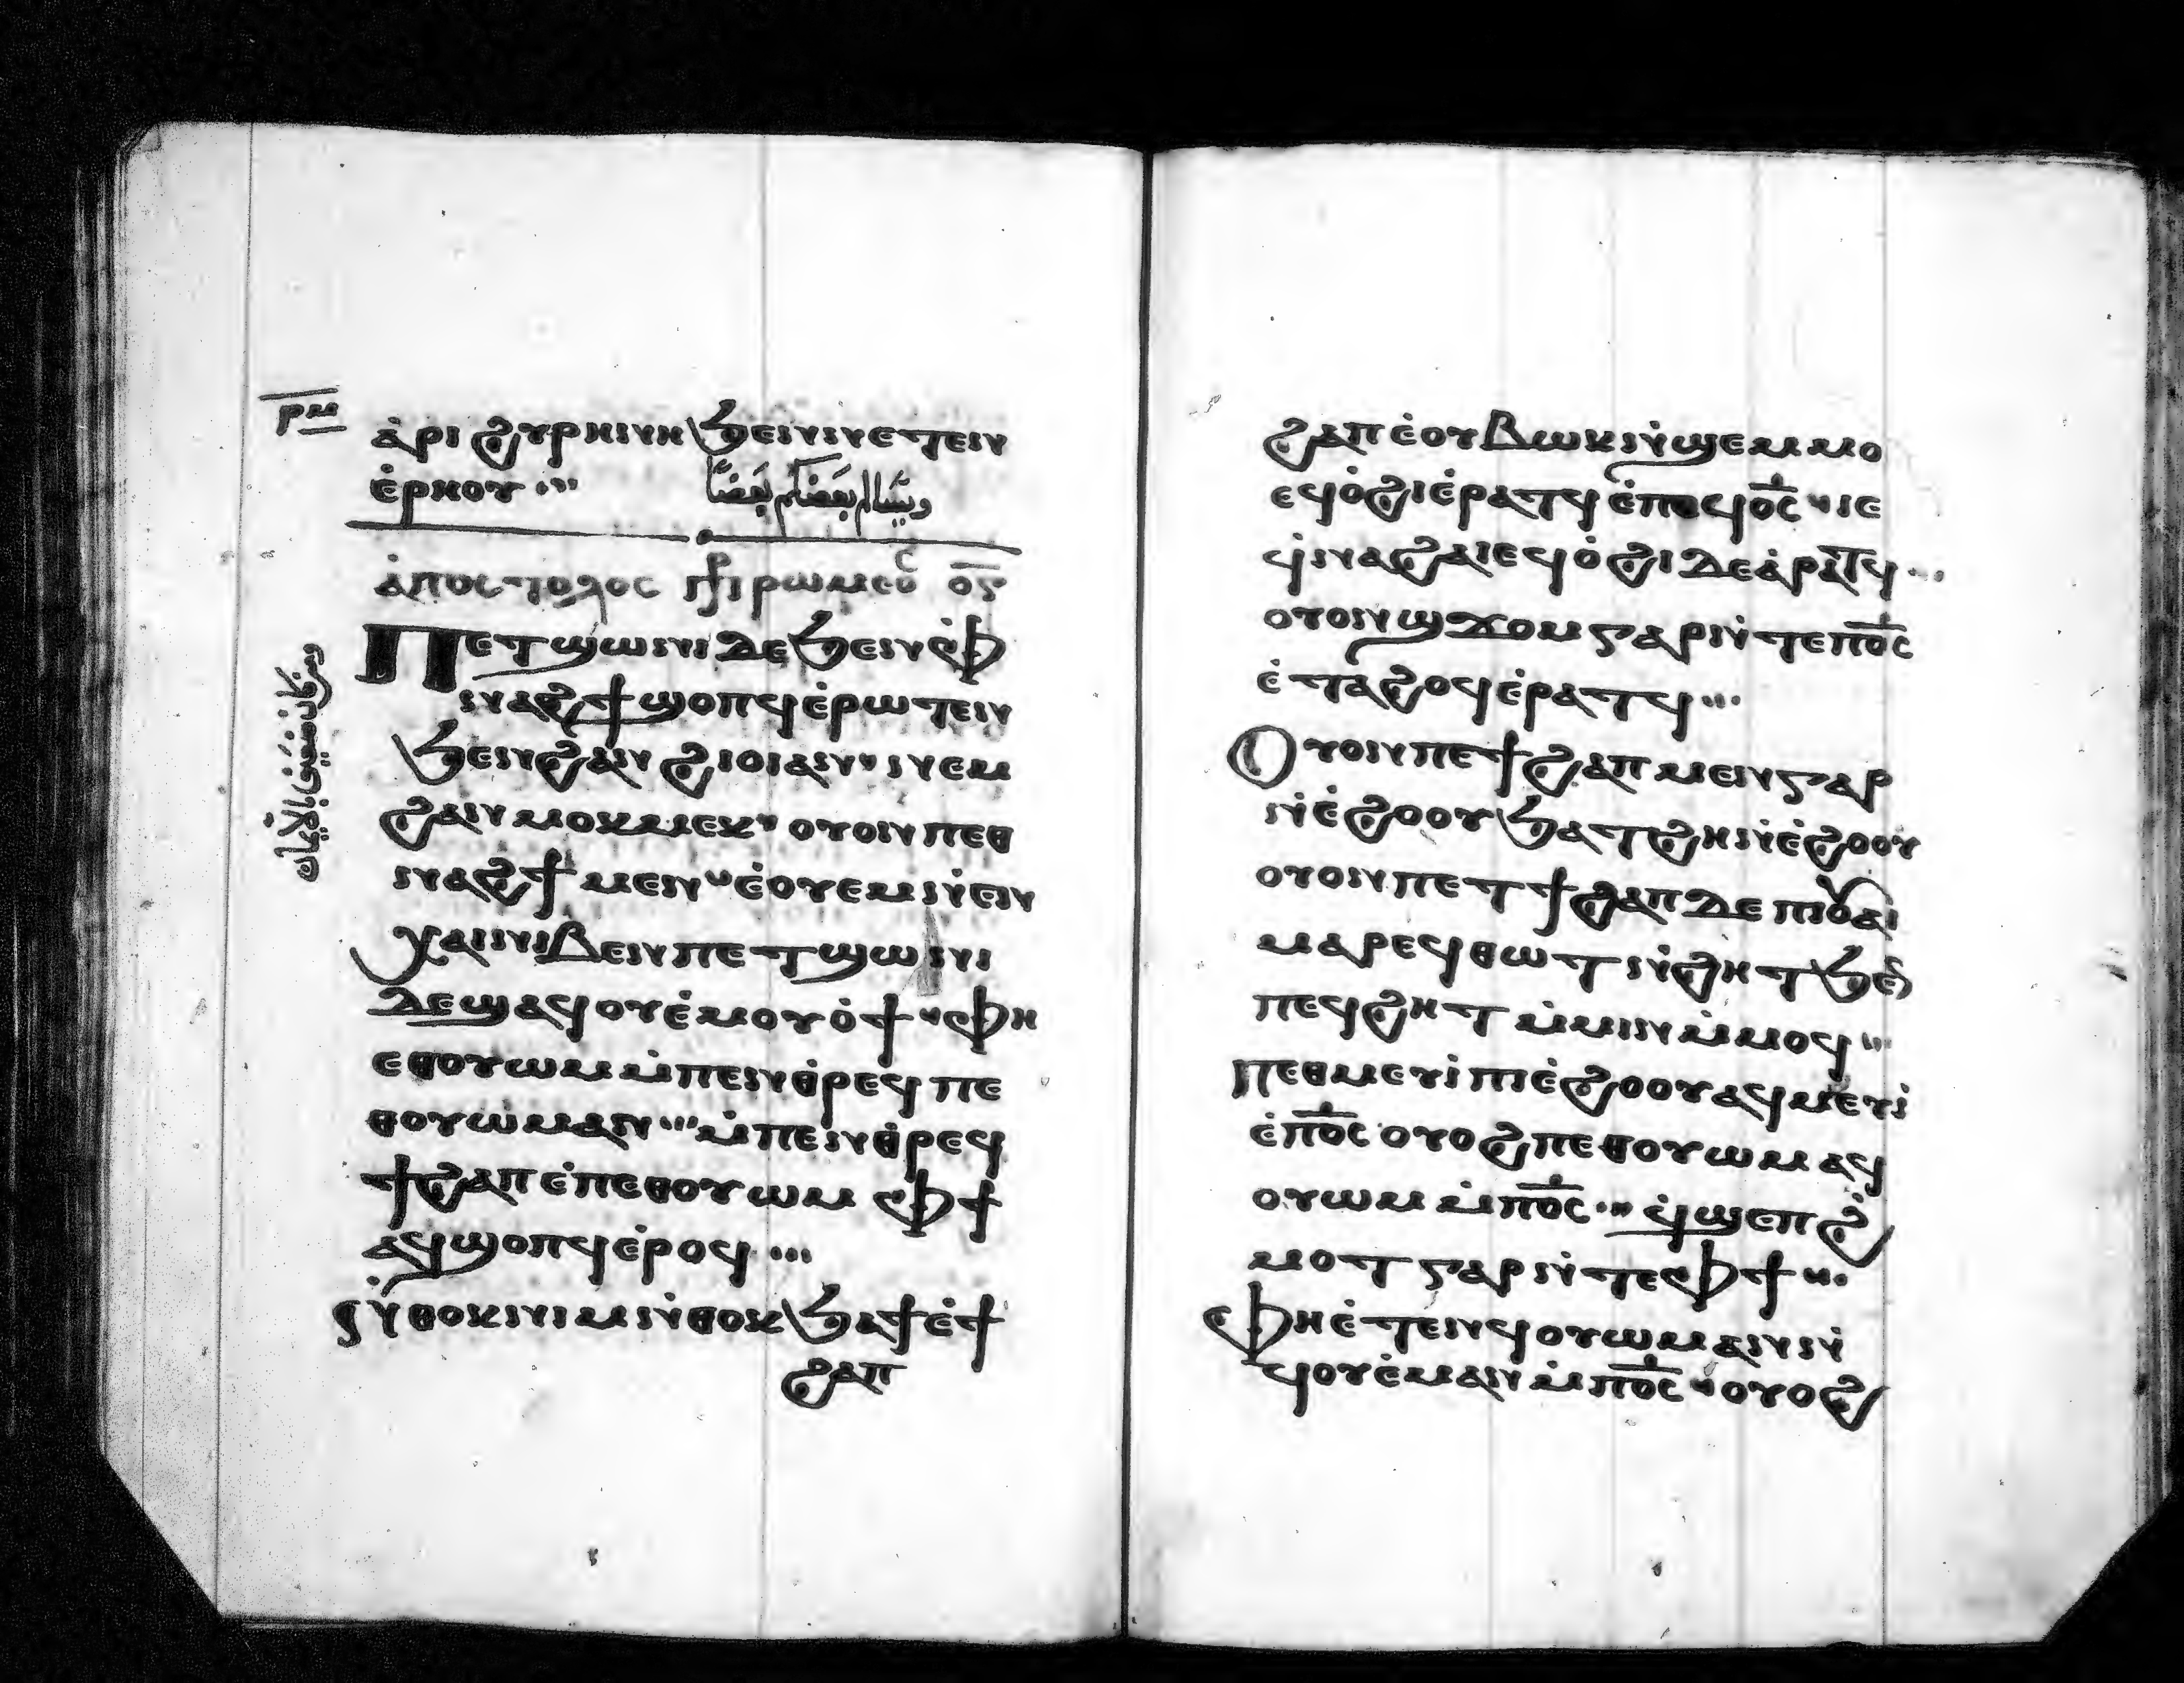 ⲣⲙ
ⲁ̇ⲣⲓ ϩⲩⲣⲏⲛⲏ ϧⲉⲛⲛⲉⲧⲉⲛ
ⲉ̇ⲣⲏⲟⲩ
ويسالم بعضكم بعضا
ⲁ̇ⲡⲟⲥⲧⲟⲗⲟⲥ ⲡⲣⲱⲙⲉⲟⲥ
ومن كان ضعيف بالايمان
Ⲡⲉⲧϣⲱⲛⲓ ⲇⲉ ϧⲉⲛ ⲫ̇
ⲛⲁϩϯ ϣⲟⲡϥ ⲉ̇ⲣⲱⲧⲉⲛ
ϧⲉⲛϩⲁⲛ ϩⲓⲟⲓⲁⲛ ⲛⲉⲙ
ϩⲁⲛⲙⲟⲕⲙⲉⲕ ⲟⲩⲟⲛ ⲡⲉⲑ
ⲛⲁϩϯ ⲙⲉⲛ ⲉ̇ⲟⲩⲉⲙ ⲛ̇ⲉⲛ
ⲭⲁⲓⲛⲓⲃⲉⲛ ⲡⲉⲧϣⲱⲛⲓ
ⲇⲉ ϣⲁϥⲟⲩⲉ̇ⲙⲟⲩⲟ̇ϯ ⲫⲏ
ⲉⲑⲟⲩⲱⲙ ⲙ̇ⲡⲉⲛⲑ̇ⲣⲉϥ ⲡⲉ
ⲑⲟⲩⲱⲙⲁⲛ ⲙ̇ⲡⲉⲛⲑ̇ⲣⲉϥ
ϯϩⲁⲡ ⲉ̇ⲡⲉⲑⲟⲩⲱⲙ ⲫϯ
ⲁϥϣⲟⲡϥ ⲉ̇ⲣⲟϥ
Ⲛ̇ⲑⲟⲕ ⲛⲓⲙ ⲛ̇ⲑⲟⲕ ϧⲁϯ ⲉ̇ϯ
ϩⲁⲡ
ϩⲁⲡ ⲉ̇ⲟⲩⲃⲱⲕ ⲛ̇ϣⲉⲙⲙⲟ
ⲉϥⲟ̇ϩⲓ ⲉ̇ⲣⲁⲧϥ ⲉ̇ⲡⲉϥⲟ̅ⲥ̅ ⲓⲉ
ϥ̇ⲛⲁϩⲁⲓ ⲉϥⲟ̇ϩⲓ ⲇⲉ ⲁ̇ⲣⲁⲧϥ
ⲟⲩⲟⲛϣϫⲟⲙ ⲅⲁⲣ ⲛ̇ⲧⲉ ⲡⲟ̅ⲥ̅
ⲉ̇ⲧⲁϩⲟϥ ⲉ̇ⲣⲁⲧϥ
Ⲟⲩⲟⲛ ⲡⲉⲧϯϩⲁⲡ ⲙⲉⲛ ⲅⲁⲣ
ⲛ̇ⲉ̇ϩⲟⲟⲩ ϧⲁⲧϩⲏ ⲛ̇ⲉ̇ϩⲟⲟⲩ
ⲟⲩⲟⲛ ⲡⲉⲧϯϩⲁⲡ ⲇⲉ ⲡⲓⲟⲩⲁⲓ
ⲙⲁⲣⲉϥⲑⲱⲧ ⲛ̇ϩⲏⲧ ϧⲉⲛ
ⲡⲉϥϩⲏⲧ ⲙ̇ⲙⲓⲛⲙ̇ⲙⲟϥ
Ⲡⲉⲑⲙⲉⲩⲓ̇ ⲡⲓⲉ̇ϩⲟⲟⲩ ⲁϥⲙⲉⲩⲓ̇
ⲉ̇ⲡⲟ̅ⲥ̅ ⲟⲩⲟϩ ⲡⲉⲑⲟⲩⲱⲙ ⲁϥ
ⲟⲩⲱⲙ ⲙ̇ⲡⲟ̅ⲥ̅ ϥ̇ϣⲉⲡϩ̇
ⲙⲟⲧ ⲅⲁⲣ ⲛ̇ⲧⲉ ⲫϯ
Ⲫⲏ ⲉ̇ⲧⲉⲛϥⲟⲩⲱⲙ ⲁⲛ ⲛ̇
ϥⲟⲩⲉ̇ⲙ ⲁⲛ ⲙ̇ⲡⲟ̅ⲥ̅ ⲟⲩⲟϩ